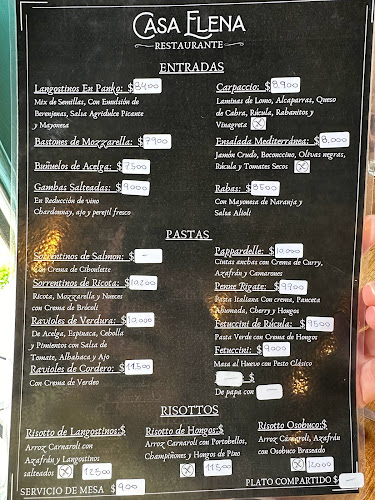 CASA ELENA
RESTAURANTE
ENTRADAS
Langostinos En Panko: $ 8400
Mix de Semillas, Con Emulsión de
Berenjenas, Salsa Agridulce Picante
y Mayonesa
Bastones de Mozzarella: $ 7900
Buñuelos de Acelga: $ 7500
Gambas Salteadas: $ 9000
En Reducción de vino
Chardonnay, ajo y perejil fresco
Carpaccio: $ 8.900
Laminas de Lomo, Alcaparras, Queso
de Cabra, Rúcula, Rabanitos y
Vinagreta
Ensalada Mediterránea: $ 8,000
Jamón Crudo, Boconccino, Olivas negras,
Rúcula y Tomates Secos
Rabas: $ 8500
Con Mayonesa de Naranja y
Salsa Alioli
PASTAS
Sorrentinos de Salmon: $ -
Con Crema de Ciboulette
Sorrentinos de Ricota: $ 10,200
Ricota, Mozzarella y Nueces
con Crema de Brócoli
Ravioles de Verdura: $ 10,000
De Acelga, Espinaca, Cebolla
y Pimientos con Salsa de
Tomate, Albahaca y Ajo
Ravioles de Cordero: $ 11500
Con Crema de Verdeo
Pappardelle: $ 10,000
Cintas anchas con Crema de Curry,
Azafrán y Camarones
Penne Rigate: $ 9700
Pasta Italiana Con crema, Panceta
Ahumada, Cherry y Hongos
Fetuccini de Rúcula: $ 9500
Pasta Verde con Crema de Hongos
Fetuccini: $ 9000
Masa al Huevo con Pesto Clásico
$
De papa con
RISOTTOS
Risotto de Langostinos: $
Arroz Carnaroli con
Azafrán y Langostinos
salteados 12500
Risotto de Hongos: $
Arroz Carnaroli con Portobellos,
Champiñones y Hongos de Pino
11500
Risotto Osobuco: $
Arroz Carnaroli, Azafrán
con Osobuco Braseado
12,000
SERVICIO DE MESA $ 900
PLATO COMPARTIDO $ -